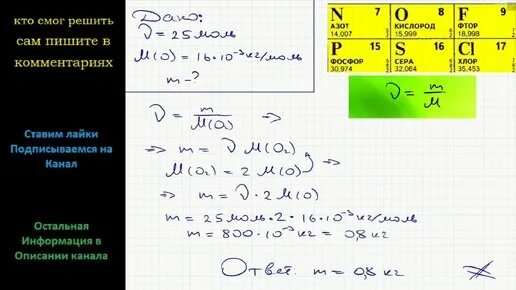 кто смог решить
сам пишите в
комментариях
Ставим лайки
Подписываемся на
Канал
Остальная
Информация в
Описании канала
Дано:
ν = 25 моль
M(O) = 16·10⁻³ кг/моль
m – ?
N 7
АЗОТ
14,007
O 8
КИСЛОРОД
15,999
F 9
ФТОР
18,998
P 15
ФОСФОР
30,974
S 16
СЕРА
32,064
Cl 17
ХЛОР
35,453
ν = m/M
ν = m/M(O₂) ⇒
⇒ m = ν M(O₂)
M(O₂) = 2 M(O)
⇒ m = ν·2 M(O)
m = 25 моль·2·16·10⁻³ кг/моль
m = 800·10⁻³ кг = 0,8 кг
Ответ: m = 0,8 кг